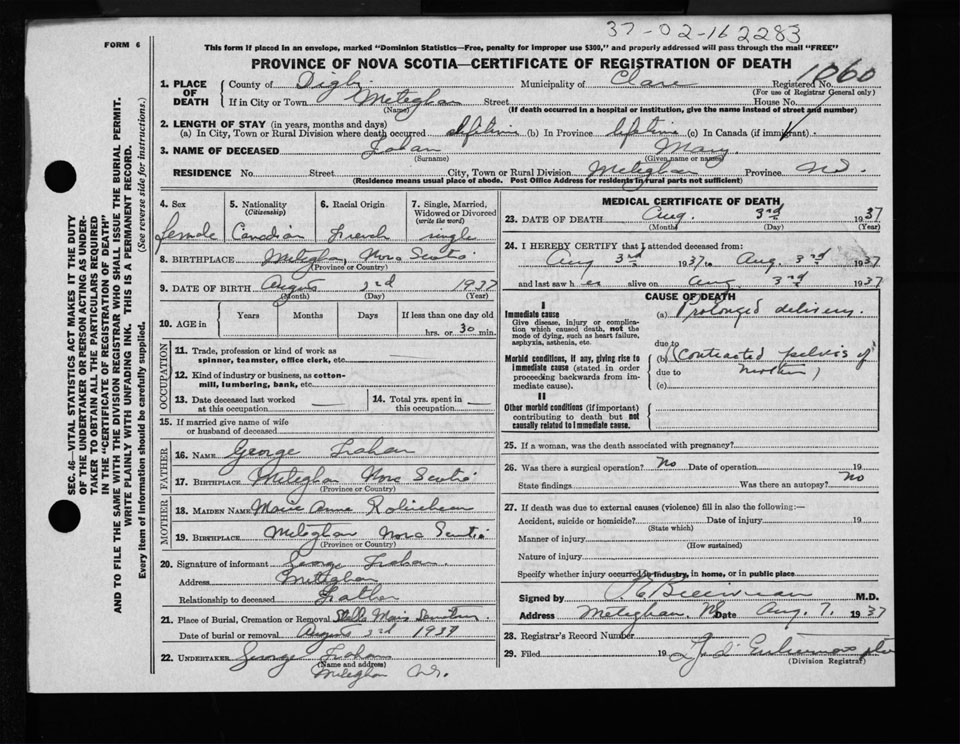 37-02-162283
FORM 6
This form if placed in an envelope, marked "Dominion Statistics—Free, penalty for improper use $300," and properly addressed will pass through the mail "FREE"
PROVINCE OF NOVA SCOTIA—CERTIFICATE OF REGISTRATION OF DEATH
1060
1. PLACE OF DEATH County of Digby Municipality of Clare Registered No.
(For use of Registrar General only)
If in City or Town Meteghan Street House No.
(Name) (If death occurred in a hospital or institution, give the name instead of street and number)
2. LENGTH OF STAY (in years, months and days)
(a) In City, Town or Rural Division where death occurred lifetime (b) In Province lifetime (c) In Canada (if immigrant)
3. NAME OF DECEASED Mary
(Surname) (Given name or names)
RESIDENCE No. Street City, Town or Rural Division Meteghan Province N.S.
(Residence means usual place of abode. Post Office Address for residents in rural parts not sufficient)
SEC. 46—VITAL STATISTICS ACT MAKES IT THE DUTY
OF THE UNDERTAKER OR PERSON ACTING AS UNDER-
TAKER TO OBTAIN ALL THE PARTICULARS REQUIRED
IN THE "CERTIFICATE OF REGISTRATION OF DEATH"
AND TO FILE THE SAME WITH THE DIVISION REGISTRAR WHO SHALL ISSUE THE BURIAL PERMIT.
WRITE PLAINLY WITH UNFADING INK. THIS IS A PERMANENT RECORD.
Every item of information should be carefully supplied. (See reverse side for instructions.)
4. Sex 5. Nationality (Citizenship) 6. Racial Origin 7. Single, Married, Widowed or Divorced (write the word)
female Canadian French single
8. BIRTHPLACE Meteghan, Nova Scotia
(Province or Country)
9. DATE OF BIRTH August 3rd 1937
(Month) (Day) (Year)
10. AGE in Years Months Days If less than one day old
hrs. or 30 min.
OCCUPATION
11. Trade, profession or kind of work as
spinner, teamster, office clerk, etc.
12. Kind of industry or business, as cotton-
mill, lumbering, bank, etc.
13. Date deceased last worked
at this occupation
14. Total yrs. spent in
this occupation
15. If married give name of wife
or husband of deceased
FATHER
16. NAME George
17. BIRTHPLACE Meteghan Nova Scotia
(Province or Country)
MOTHER
18. MAIDEN NAME Marie Anne Robicheau
19. BIRTHPLACE Meteghan Nova Scotia
(Province or Country)
20. Signature of informant George
Address Meteghan
Relationship to deceased Father
21. Place of Burial, Cremation or Removal Stella Maris
Date of burial or removal August 3rd 1937
22. UNDERTAKER George
(Name and address)
Meteghan N.S.
MEDICAL CERTIFICATE OF DEATH
23. DATE OF DEATH Aug. 3rd 1937
(Month) (Day) (Year)
24. I HEREBY CERTIFY that I attended deceased from:
Aug 3rd 1937 to Aug. 3rd 1937
and last saw her alive on Aug. 3rd 1937
CAUSE OF DEATH
I
Immediate cause
Give disease, injury or complica-
tion which caused death, not the
mode of dying, such as heart failure,
asphyxia, asthenia, etc.
(a) Prolonged delivery.
due to
Morbid conditions, if any, giving rise to
Immediate cause (stated in order
proceeding backwards from im-
mediate cause).
(b) (Contracted pelvis of
due to mother)
(c)
II
Other morbid conditions (if important)
contributing to death but not
causally related to Immediate cause.
25. If a woman, was the death associated with pregnancy?
26. Was there a surgical operation? No Date of operation 19
State findings Was there an autopsy? No
27. If death was due to external causes (violence) fill in also the following:—
Accident, suicide or homicide? Date of injury 19
(State which)
Manner of injury
(How sustained)
Nature of injury
Specify whether injury occurred in industry, in home, or in public place
Signed by M.D.
Address Meteghan, NS Date Aug. 7. 1937
28. Registrar's Record Number
29. Filed 19
(Division Registrar)